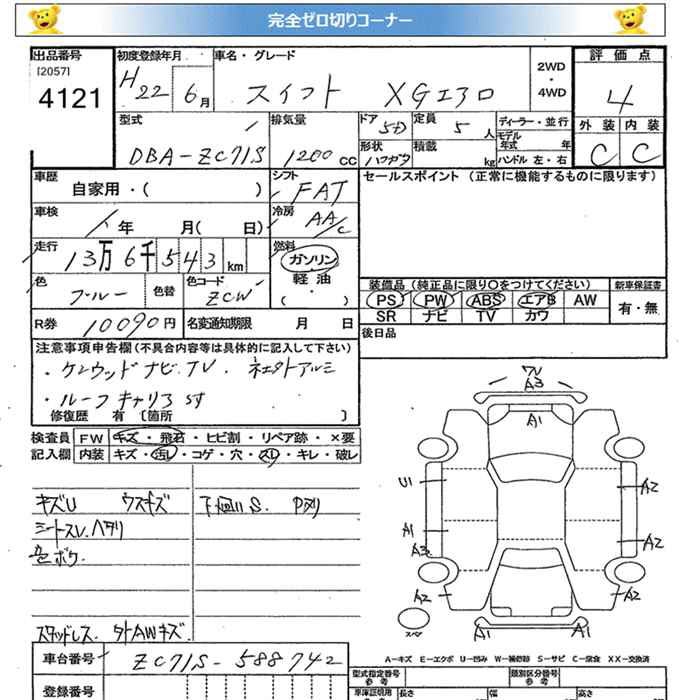 完全ゼロ切りコーナー
出品番号
[2057]
4121
初度登録年月
H22 6月
車名・グレード
スイフト XGエアロ
2WD
・
4WD
評価点
4
外装 内装
C C
型式
DBA-ZC71S
排気量
1200cc
ドア
5D
定員
5人
ディーラー・並行
モデル
年式 年
形状
ハッチ
積載
kg
ハンドル 左・右
車歴
自家用・( )
シフト
FAT
セールスポイント (正常に機能するものに限ります)
車検
年 月( 日)
冷房
AAC
走行
13万6千543km
燃料
ガソリン
軽油
( ・ )
色
ブルー
色替
色コード
ZCW
装備品 (純正品に限り○をつけてください)
新車保証書
PS PW ABS エアB AW
SR ナビ TV カワ
有・無
R券
10090円
名変通知期限 月 日
後日品
注意事項申告欄(不具合内容等は具体的に記入して下さい)
・ケンウッドナビ.TV. ネエクトアルミ
・ルーフキャリア
修復歴 有 〔箇所 〕
検査員 FW キズ・飛石・ヒビ割・リペア跡・×要
記入欄 内装 キズ・汚レ・コゲ・穴・スレ・キレ・破レ
キズU ウスキズ
下回りS. Pメリ
シートスレ.ヘタリ
色ボケ.
スタッドレス. 外AWキズ.
ワレ
A3
A1
U1
A2
A1
A3
A2
A2
A2
スペア
A1
A1
A-キズ E-エクボ U-凹み W-補修跡 S-サビ C-腐食 XX-交換済
車台番号
ZC71S-588742
登録番号
型式指定番号
参考
類別区分番号
参考
車庫証明用
参考
長さ
幅
高さ